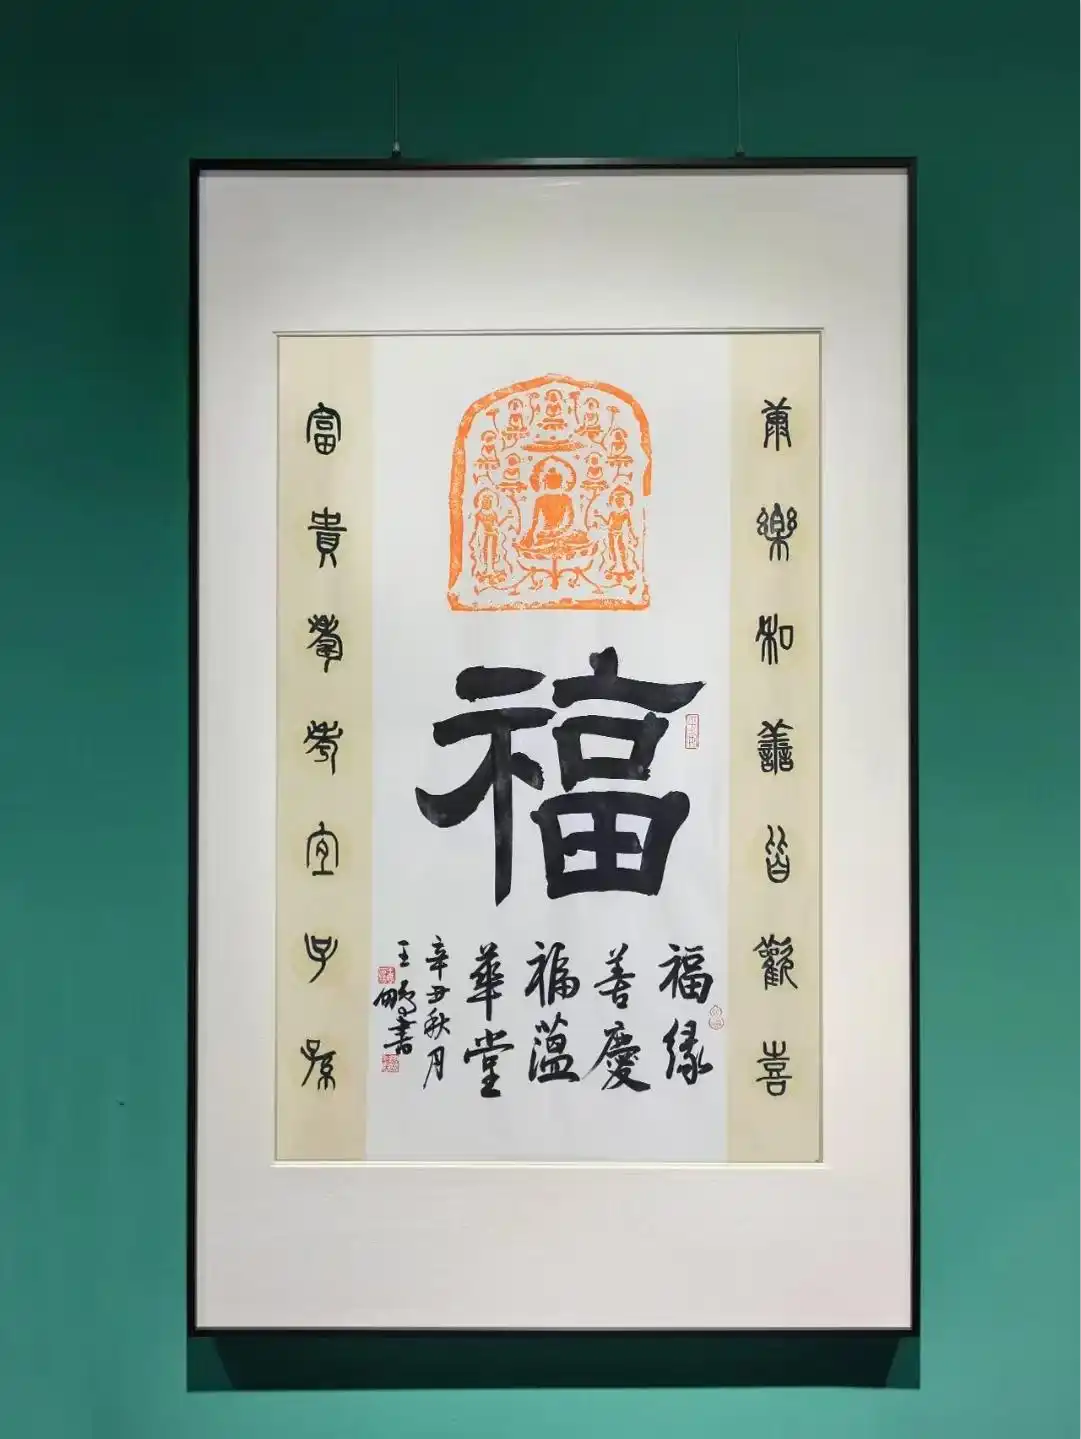 康樂和善皆歡喜
福
福緣
善慶
福薀
華堂
辛丑秋月
王鵬書
富貴壽考宜子孫